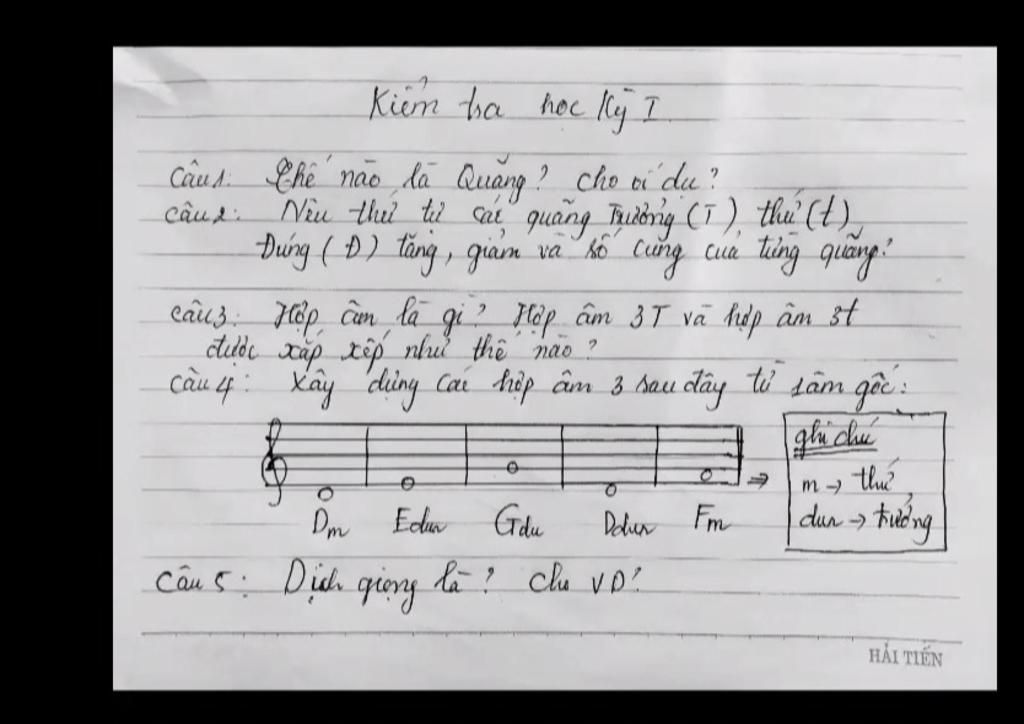 Kiểm tra học Kỳ I
Câu 1: Thế nào là Quãng? cho ví dụ?
Câu 2: Nêu thứ tự các quãng Trưởng (T) thứ (t)
Đúng (Đ) tăng, giảm và số cung của từng quãng?
Câu 3: Hợp âm là gì? Hợp âm 3T và hợp âm 3t
được xắp xếp như thế nào?
Câu 4: Xây dựng các hợp âm 3 sau đây từ 1 âm gốc:
ghi chú
m → thứ
dur → trưởng
Dm Edur Gdu Ddur Fm
Câu 5: Dịch giọng là? Cho VD?
HẢI TIẾN